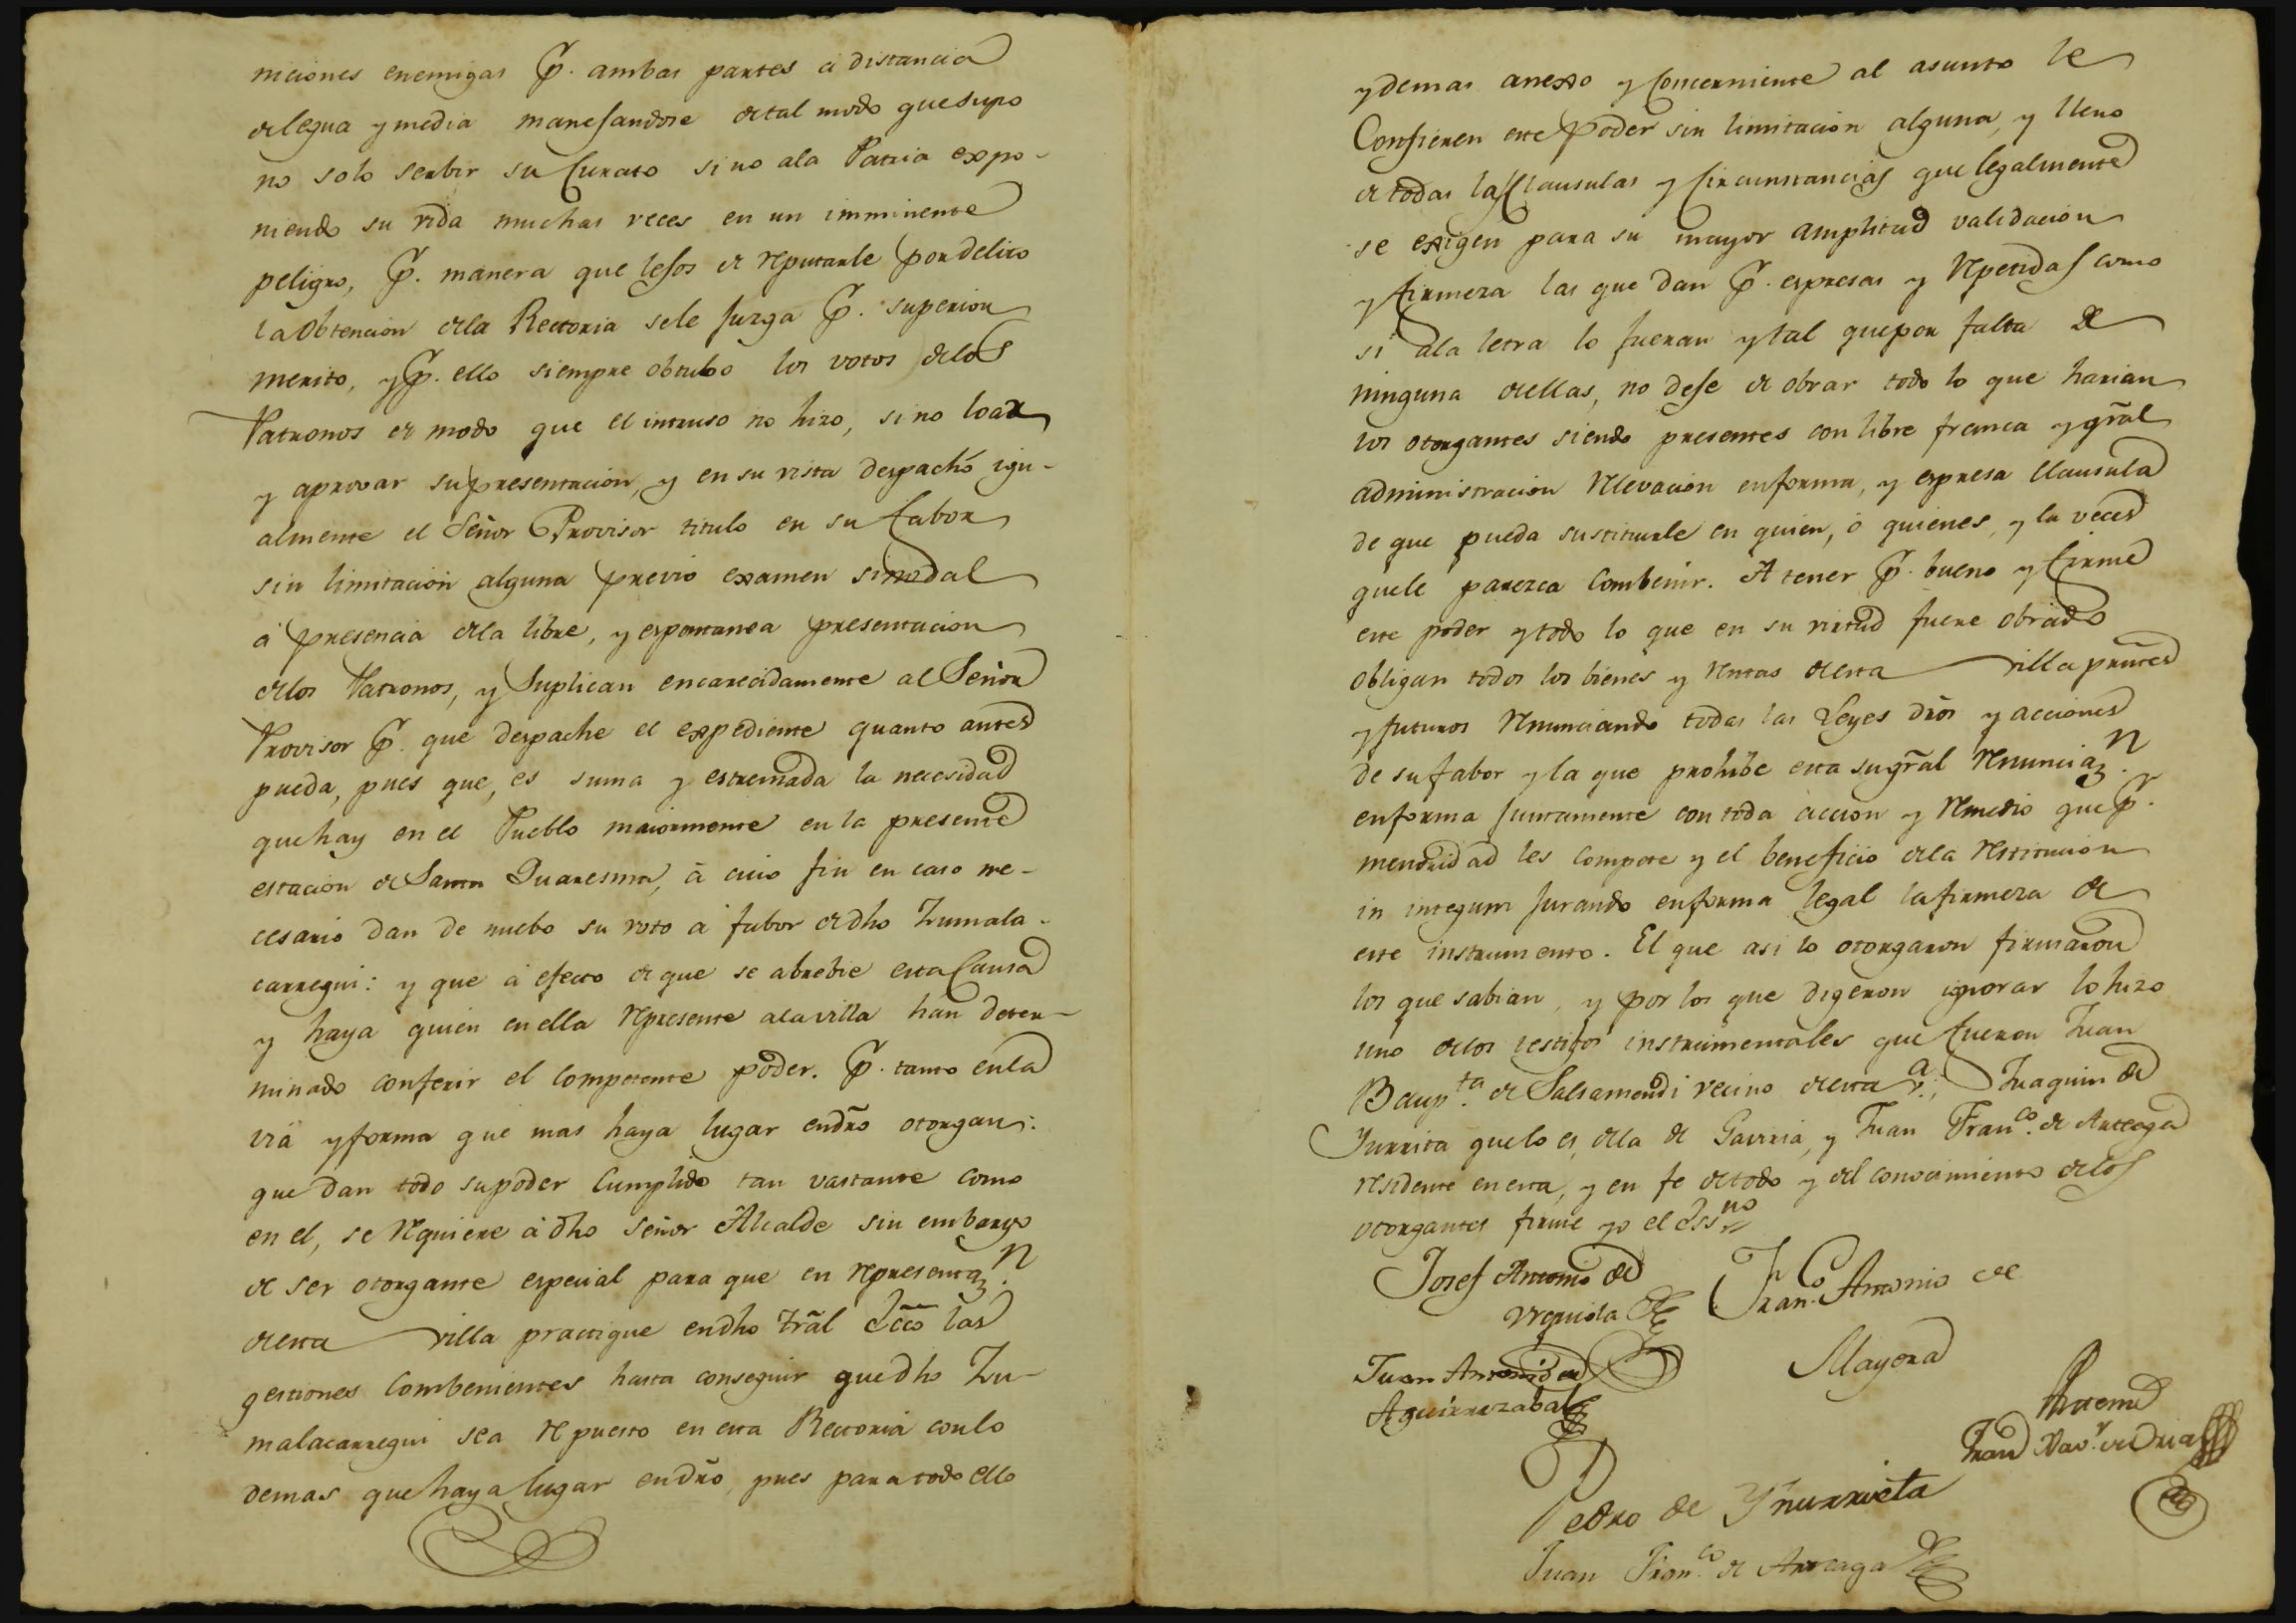 niciones enemigas p.r ambas partes á distancia
de legua y media manejandose de tal modo que supo
no solo serbir su Curato sino ala Patria expo-
niendo su vida muchas veces en un imminente
peligro, p.r manera que lejos de reputarle por delito
la obtencion dela Rectoria sele juzga p.r superior
merito, y p.r ello siempre obtubo los votos delos
Patronos de modo que el intruso no hizo, sino loar
y aprovar su presentacion, y en su vista despachó igu-
almente el Señor Provisor titulo en su fabor
sin limitacion alguna previo examen sinodal
á presencia dela libre, y espontanea presentacion
delos Patronos, y Suplican encarecidamente al Señor
Provisor p.r que despache el expediente quanto antes
pueda, pues que, es suma y estremada la necesidad
que hay en el Pueblo maiormente en la presente
estacion de Santa Quaresma, á cuio fin en caso ne-
cesario dan de nuebo su voto á fabor de dho Zumala-
carregui: y que á efecto de que se abrebie esta Causa
y haya quien en ella represente ala villa han deter-
minado conferir el competente poder. P.r tanto en la
via y forma que mas haya lugar en dro otorgan:
que dan todo su poder Cumplido tan vastante como
en el, se requiere á dho Señor Alcalde sin embargo
de ser otorgante especial para que en representaz.n
de esta villa practique en dho Tral Ecco las
gestiones Combenientes hasta conseguir que dho Zu-
malacarregui sea repuesto en esta Rectoria con lo
demas que haya lugar en dro, pues para todo ello
y demas anexo y Concerniente al asunto le
Confieren este Poder sin limitacion alguna, y lleno
de todas las Clausulas y Circunstancias que legalmente
se exigen para su mayor amplitud validacion
y firmeza las que dan p.r espresas y repetidas como
si ala letra lo fueran y tal que por falta de
ninguna de ellas, no deje de obrar todo lo que harian
los otorgantes siendo presentes con libre franca y gral
administracion relevacion en forma, y espresa Clausula
de que pueda sustituirle en quien, ó quienes, y la veces
que le parezca Combenir. A tener p.r bueno y firme
este poder y todo lo que en su virtud fuere obrado
obligan todos los bienes y rentas de esta villa prntes
y futuros renunciando todas las Leyes dros y acciones
de su fabor y la que prohibe esta su gral renunciaz.n
en forma juntamente con toda accion y remedio que p.r
menoridad les compete y el beneficio dela restitucion
in integum jurando en forma legal la firmeza de
este instrumento. El que asi lo otorgaron firmaron
los que sabian, y por los que digeron ignorar lo hizo
uno delos testigos instrumentales que fueron Juan
Baup.ta de Salsamendi vecino de esta v.a; Juaquin de
Yurrita que lo es, dela de Gaviria, y Juan Fran.co de Arteaga
residente en esta, y en fe de todo y del conocimiento delos
otorgantes firme yo el Ess.no
Josef Antonio de
Urquiola
Fran.co Antonio de
Mayora
Juan Antonio de
Aguirrezabal
Antemi
Fran.co Xav.r de Oria
Pedro de Ynurrieta
Juan Fran.co de Arteaga